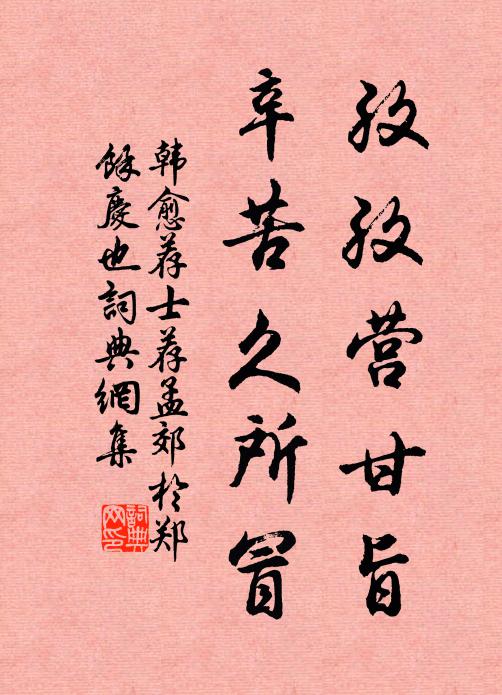 孜孜营甘旨
辛苦久所冒
韩愈荐士荐孟郊於郑
馀慶也詞典網集
詞典网印